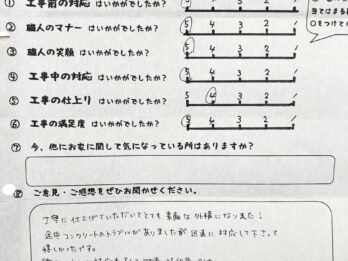 ① 工事前の対応 はいかがでしたか? 5 4 3 2 1
② 職人のマナー はいかがでしたか? 5 4 3 2 1
③ 職人の笑顔 はいかがでしたか? 5 4 3 2 1
④ 工事中の対応 はいかがでしたか? 5 4 3 2 1
⑤ 工事の仕上り はいかがでしたか? 5 4 3 2 1
⑥ 工事の満足度 はいかがでしたか? 5 4 3 2 1
当てはまる
○をつけてく
⑦ 今、他にお家に関して気になっている所はありますか?
⑧ ご意見・ご感想をぜひお聞かせください。
丁寧に仕上げていただいてとても素敵な外構になりました!
途中コンクリートのトラブルがありましたが迅速に対応して下さって
嬉しかったです。